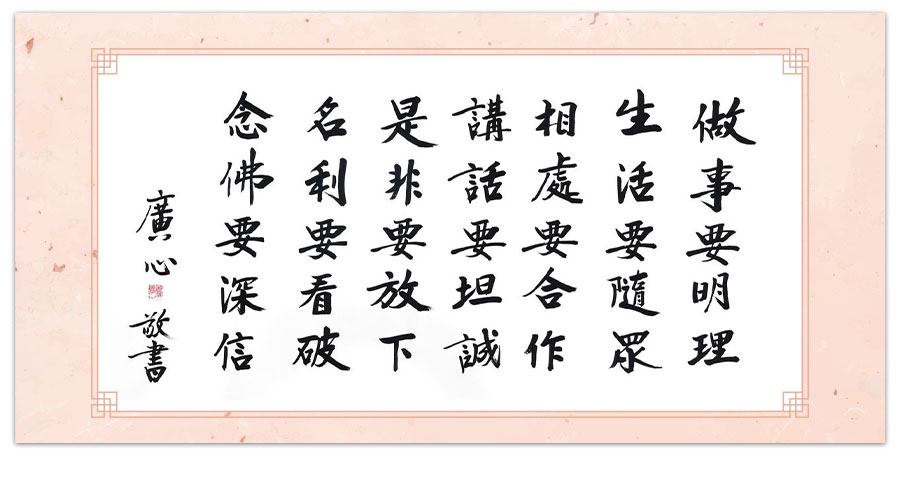 做事要明理
生活要隨眾
相處要合作
講話要坦誠
是非要放下
名利要看破
念佛要深信
廣心敬書